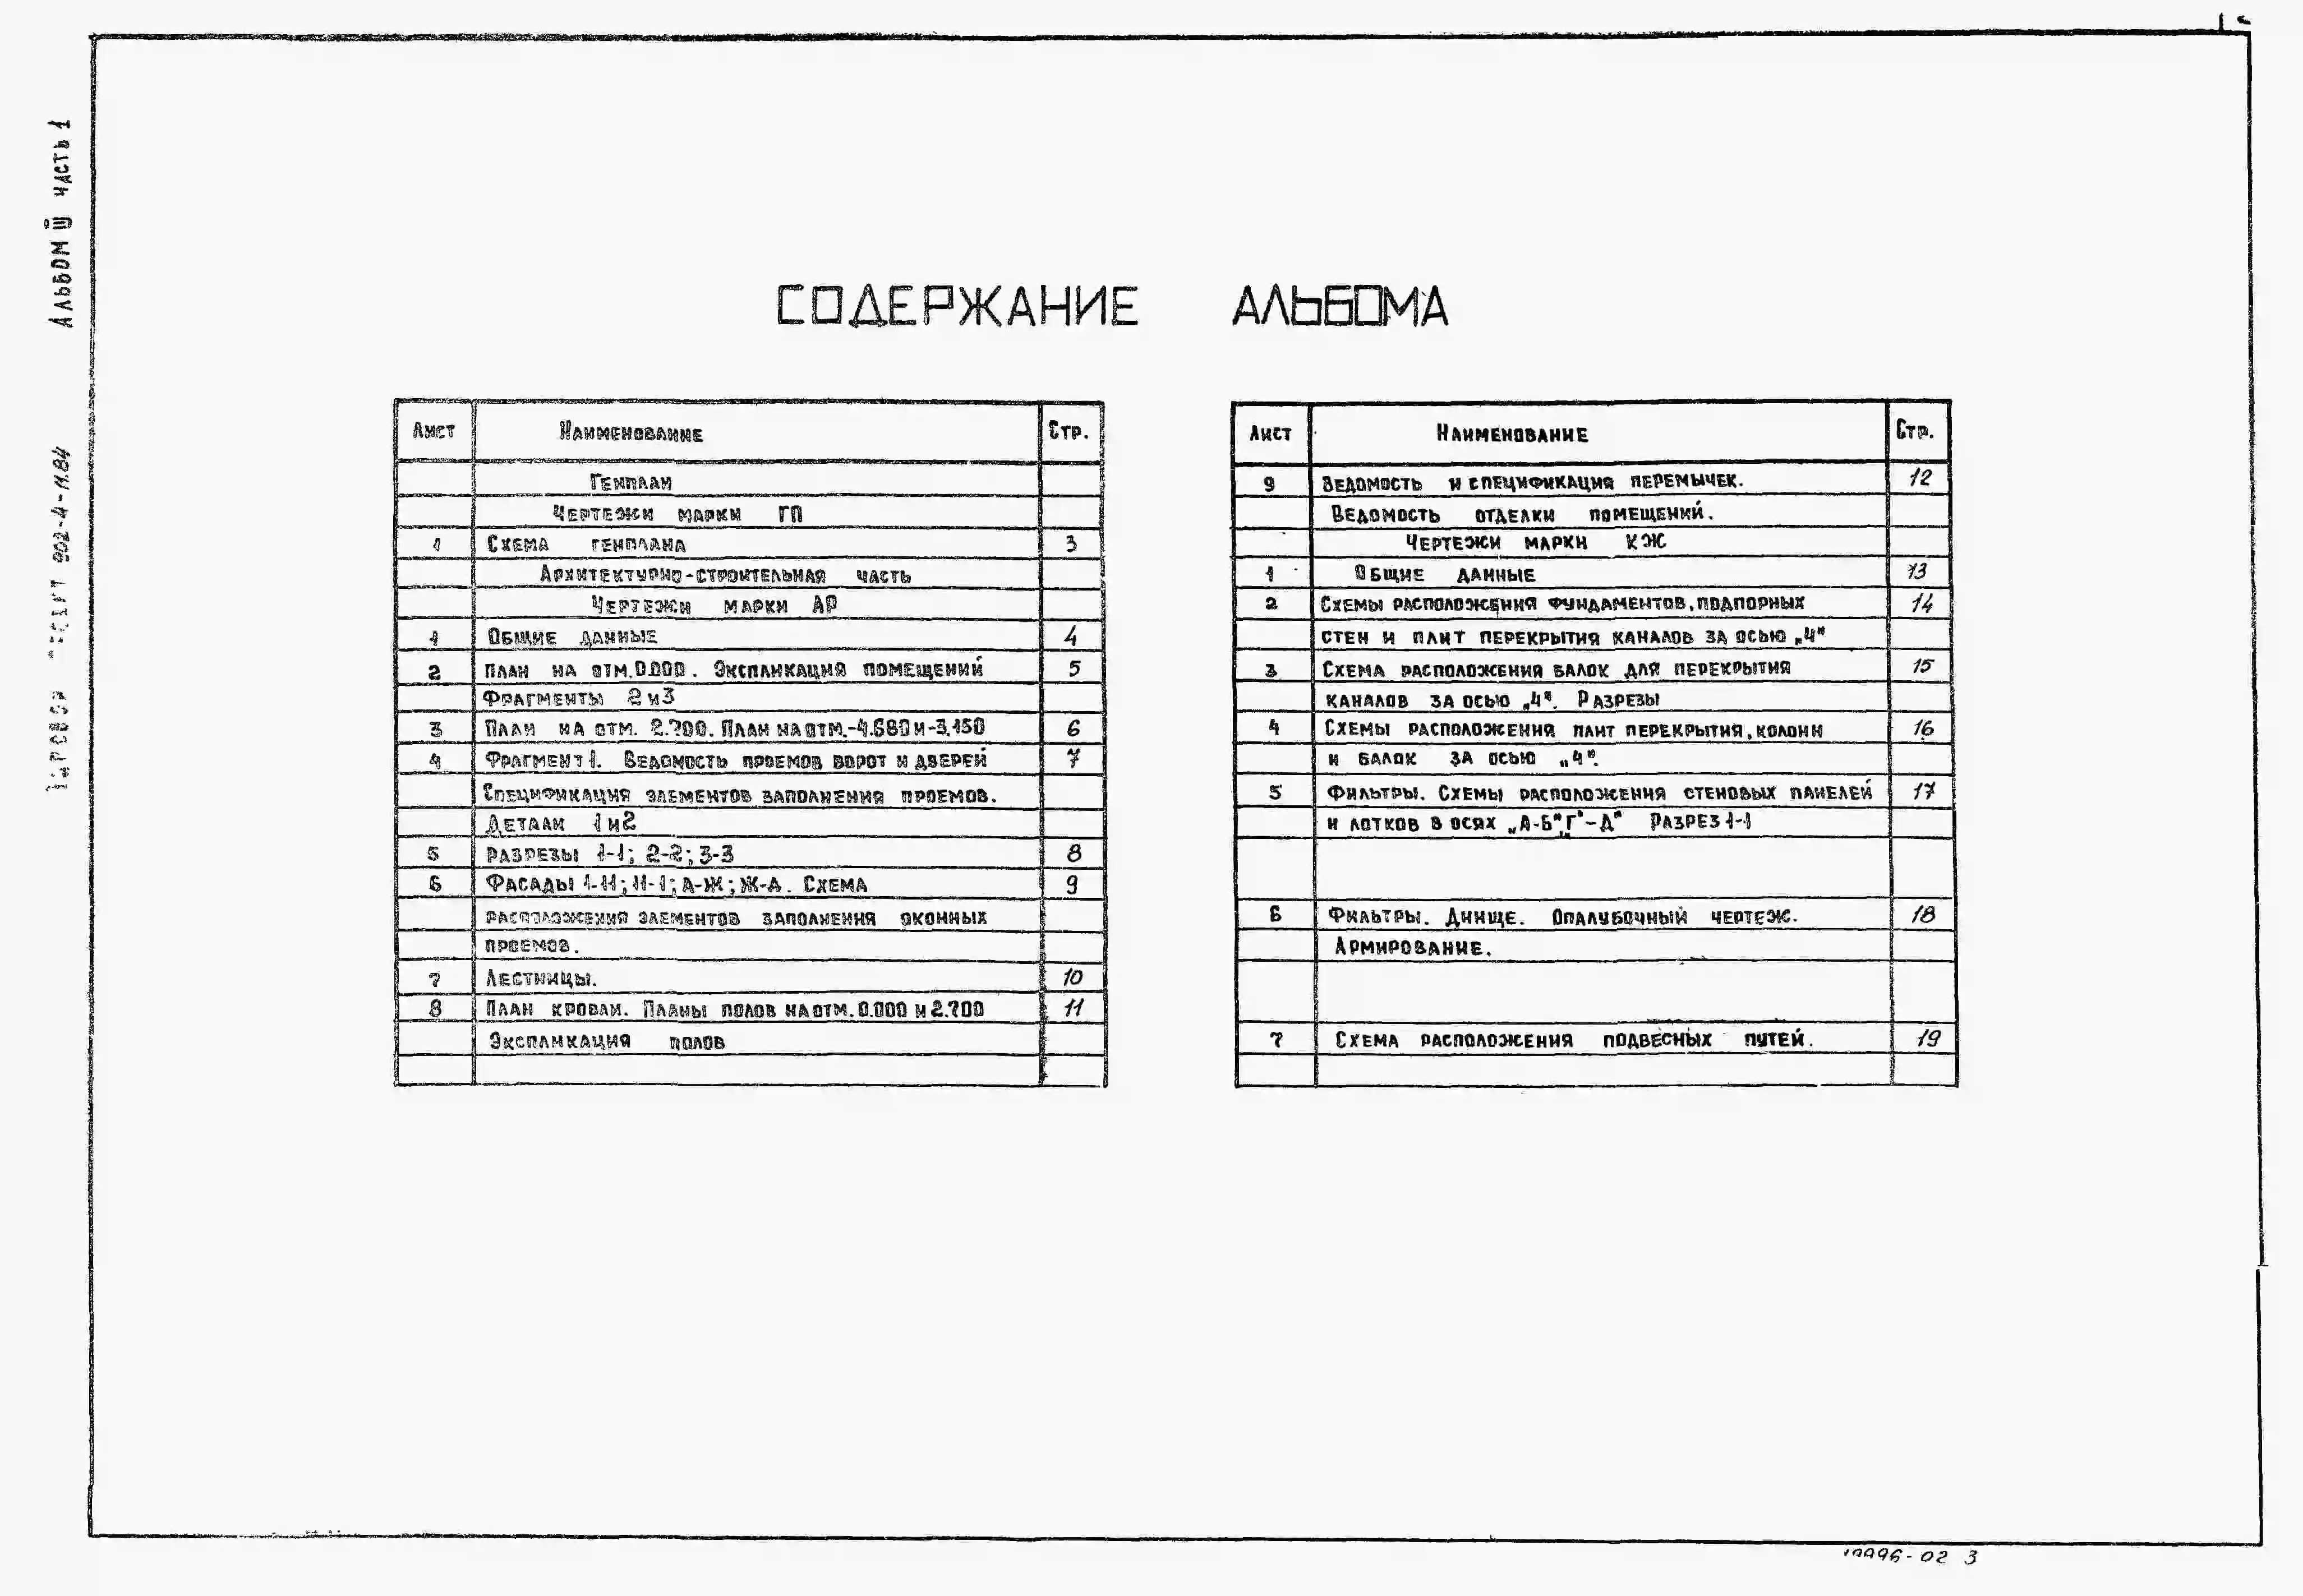 Альбом III часть 1
902-4-11.84
СОДЕРЖАНИЕ АЛЬБОМА
Лист Наименование Стр.
Генплан
Чертежи марки ГП
1 Схема генплана 3
Архитектурно-строительная часть
Чертежи марки АР
1 Общие данные 4
2 План на отм. 0.000. Экспликация помещений 5
Фрагменты 2 и 3
3 План на отм. 2.700. План на отм.-4.680 и -3.150 6
4 Фрагмент 1. Ведомость проемов ворот и дверей 7
Спецификация элементов заполнения проемов.
Детали 1 и 2
5 Разрезы 1-1; 2-2; 3-3 8
6 Фасады 1-11; 11-1; А-Ж; Ж-А. Схема 9
расположения элементов заполнения оконных
проемов.
7 Лестницы. 10
8 План кровли. Планы полов на отм. 0.000 и 2.700 11
Экспликация полов
Лист Наименование Стр.
9 Ведомость и спецификация перемычек. 12
Ведомость отделки помещений.
Чертежи марки КЖ
1 Общие данные 13
2 Схемы расположения фундаментов, подпорных 14
стен и плит перекрытия каналов за осью „4"
3 Схема расположения балок для перекрытия 15
каналов за осью „4". Разрезы
4 Схемы расположения плит перекрытия, колонн 16
и балок за осью „4".
5 Фильтры. Схемы расположения стеновых панелей 17
и лотков в осях „А-Б" „Г-Д" Разрез 1-1
6 Фильтры. Днище. Опалубочный чертеж. 18
Армирование.
7 Схема расположения подвесных путей. 19
02 3